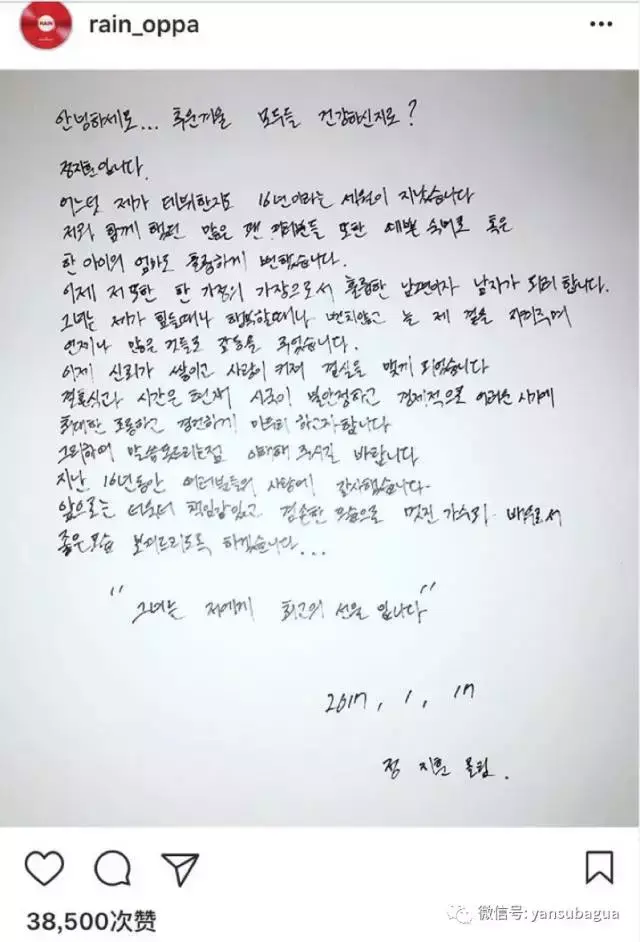 RAIN
rain_oppa
안녕하세요... 추운겨울 모두들 건강하신지요?
정지훈입니다.
어느덧 제가 데뷔한지도 16년이라는 세월이 지났습니다
저와 함께 했던 많은 팬 여러분들 또한 예쁜 숙녀로 혹은
한 아이의 엄마로 훌륭하게 변했습니다.
이제 저 또한 한 가정의 가장으로서 훌륭한 남편이자 남자가 되려 합니다.
그녀는 제가 힘들때나 행복할때나 변치않고 늘 제 곁을 지켜주며
언제나 많은 것들로 감동을 주었습니다.
이제 신뢰가 쌓이고 사랑이 커져 결실을 맺게 되었습니다
결혼식과 시간은 현재 시국이 불안정하고 경제적으로 어려운 시기에
최대한 조용하고 경건하게 마무리 하고자합니다
그리하여 말씀못드리는점 이해해 주시길 바랍니다
지난 16년동안 여러분들의 사랑에 감사했습니다.
앞으로는 더욱더 책임감있고 겸손한 모습으로 멋진 가수와 배우로서
좋은모습 보여드리도록 하겠습니다...
"그녀는 저에게 최고의 선물 입니다"
2017, 1, 17
정 지훈 올림.
38,500次赞
微信号: yansubagua